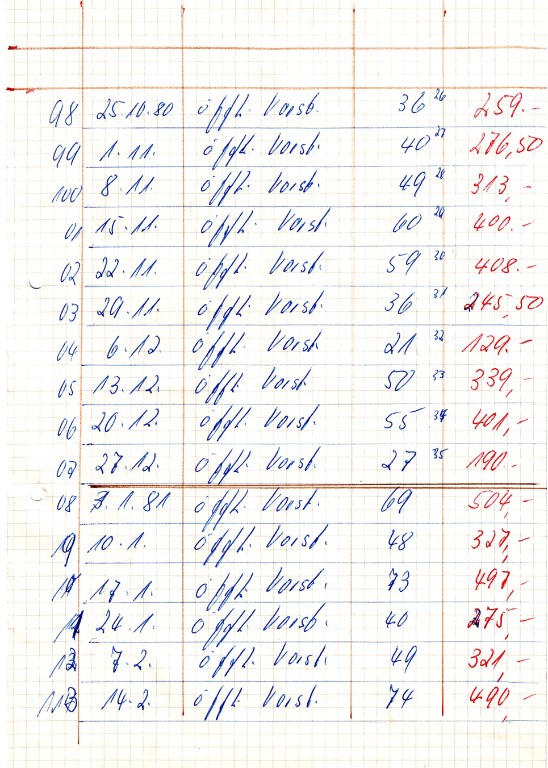 98 25.10.80 öfftl. Vorst. 36 26 259.-
99 1.11. öfftl. Vorst. 40 27 276,50
100 8.11. öfftl. Vorst. 49 28 313,-
01 15.11. öfftl. Vorst. 60 29 400.-
02 22.11. öfftl. Vorst. 59 30 408.-
03 29.11. öfftl. Vorst. 36 31 245,50
04 6.12. öfftl. Vorst. 21 32 129.-
05 13.12. öfftl. Vorst. 50 33 339,-
06 20.12. öfftl. Vorst. 55 34 401,-
07 27.12. öfftl. Vorst. 27 35 190.-
08 3.1.81 öfftl. Vorst. 69 504,-
10.1. öfftl. Vorst. 48 327,-
17.1. öfftl. Vorst. 73 497,-
24.1. öfftl. Vorst. 40 275,-
12 7.2. öfftl. Vorst. 49 321,-
113 14.2. öfftl. Vorst. 74 490,-